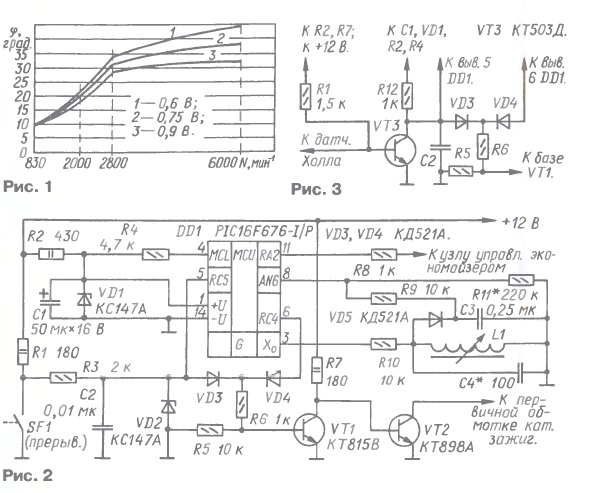 φ,
град.
35
30
25
20
15
10
5
0
1
2
3
1—0,6 В;
2—0,75 В;
3—0,9 В.
830
2000
2800
6000 N, мин⁻¹
Рис. 1
К R2, R7;
к +12 В.
К C1, VD1,
R2, R4
VT3 КТ503Д.
К выв. 5
DD1.
К выв.
6 DD1.
R1
1,5 к
R12
1 к
VD3
VD4
VT3
К датч.
Холла
C2
R5
R6
К базе
VT1.
Рис. 3
+12 В
R2 430
R4
4,7 к
DD1 PIC16F676-I/P
VD3, VD4 КД521А.
4
MCL
MCU
RA2
11
К узлу управл. эко-
номайзером
5
RC5
AN6
8
R8 1 к
R9 10 к
R11* 220 к
VD1
КС147А
1
+U
14
-U
RC4
6
VD5 КД521А
C3
0,25 мк
C1
50 мк×16 В
G
X₀
3
L1
R1 180
R3 2 к
R7
180
R10
10 к
C4* 100
C2
0,01 мк
VD3
VD4
К пер-
вичной об-
мотке кат.
зажиг.
SF1
(прерыв.)
VD2
КС147А
R6 1 к
R5 10 к
VT1
КТ815В
VT2
КТ898А
Рис. 2